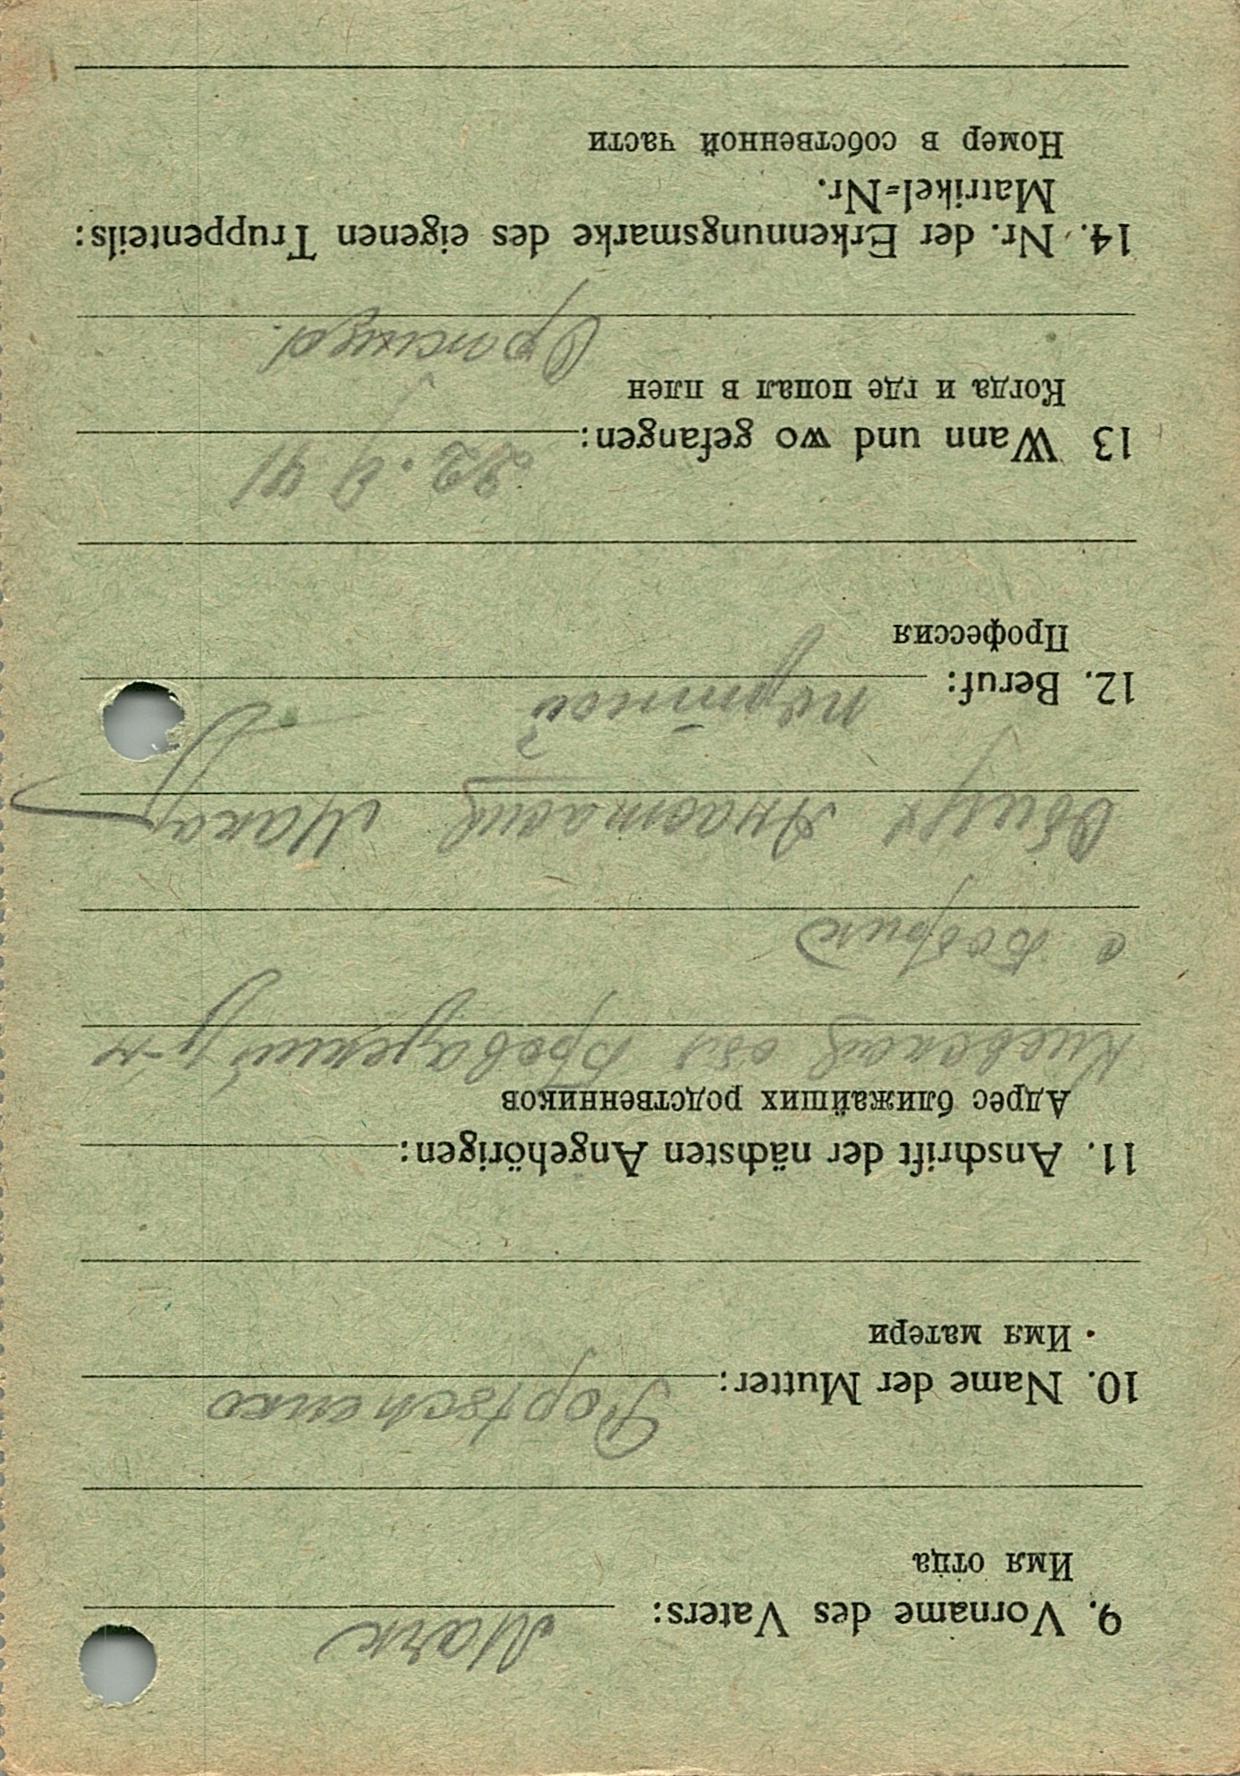 9. Vorname des Vaters: Mark
Имя отца
10. Name der Mutter:
Имя матери
11. Anschrift der nächsten Angehörigen:
Адрес ближайших родственников
Киевская обл
с
Анастасия
12. Beruf: портной
Профессия
13 Wann und wo gefangen: 22. 9 41
Когда и где попал в плен
Оржица.
14. Nr. der Erkennungsmarke des eigenen Truppenteils:
Matrikel=Nr.
Номер в собственной части